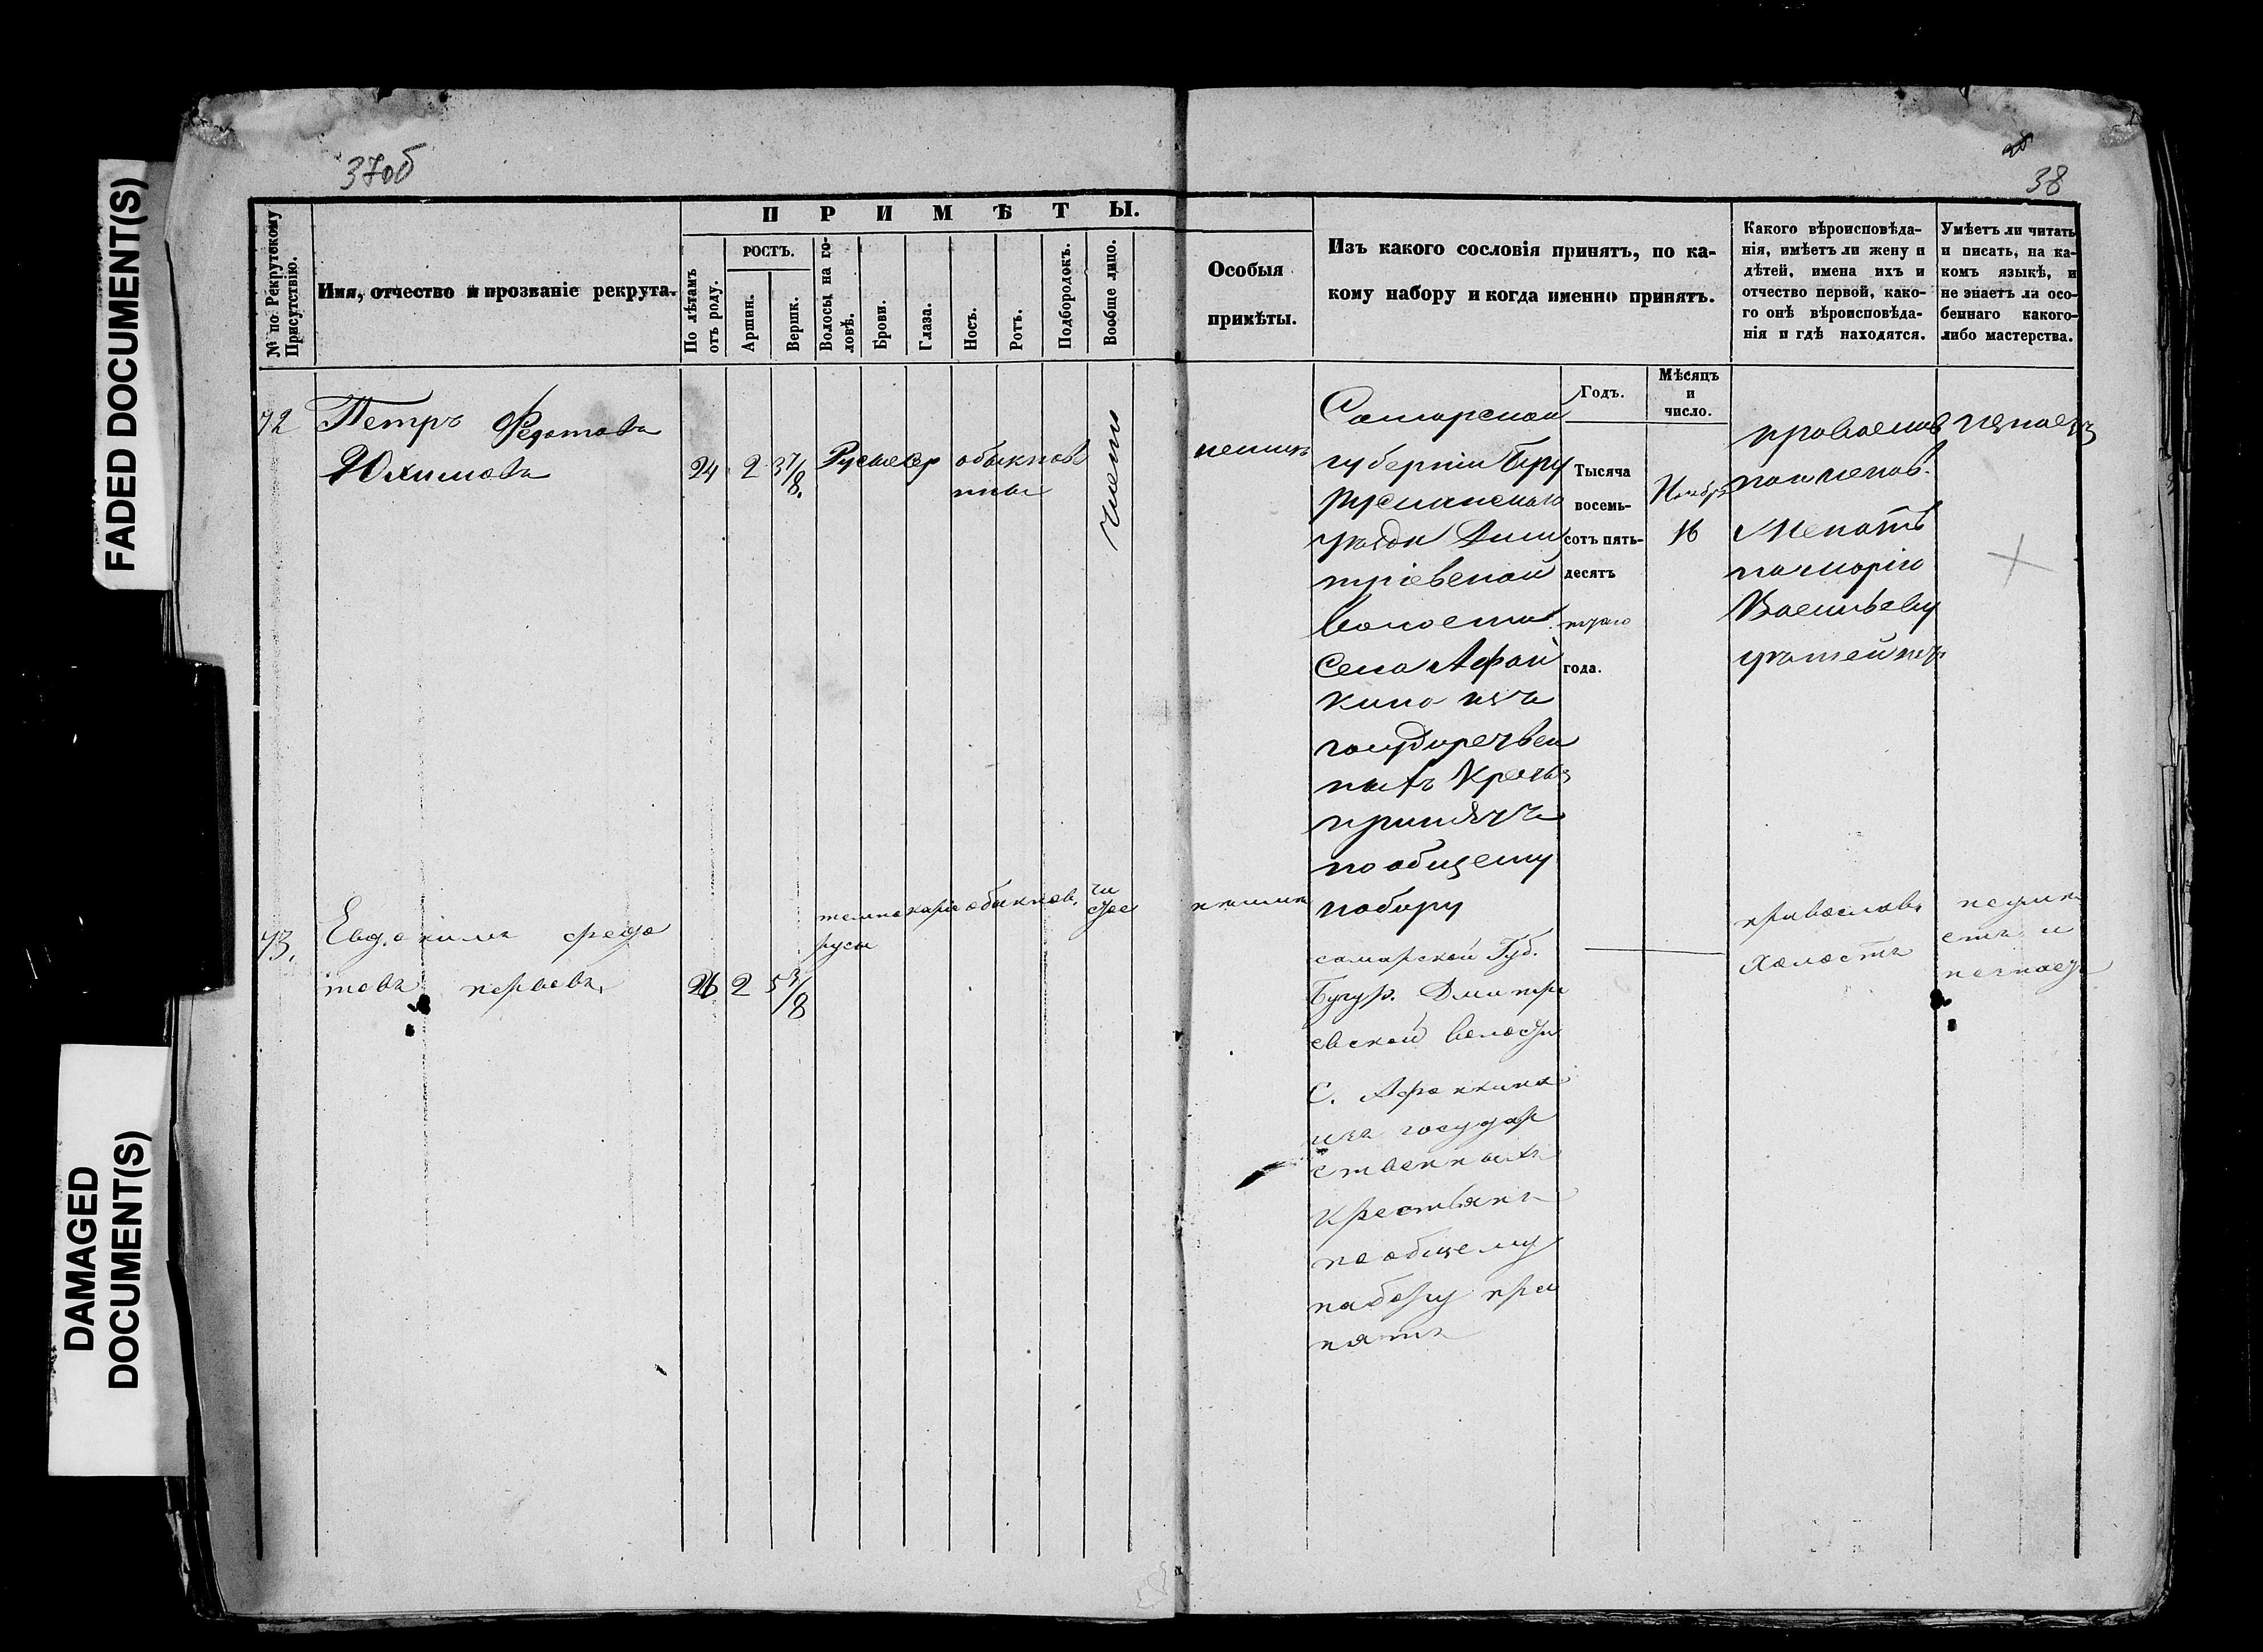 FADED DOCUMENT(S)
DAMAGED
DOCUMENT(S)
37об
38
№ по Рекрутскому
Присутствію.
Имя, отчество и прозваніе рекрута.
ПРИМѢТЫ.
По лѣтамъ
отъ роду.
РОСТЪ.
Аршин.
Вершк.
Волосы на го-
ловѣ.
Брови.
Глаза.
Носъ.
Ротъ.
Подбородокъ.
Вообще лицо.
Особыя
примѣты.
Изъ какого сословія принятъ, по ка-
кому набору и когда именно принятъ.
Какого вѣроисповѣда-
нія, имѣетъ ли жену и
дѣтей, имена ихъ и
отчество первой, како-
го онѣ вѣроисповѣда-
нія и гдѣ находятся.
Умѣетъ ли читать
и писать, на ка-
комъ языкѣ, и
не знаетъ ли осо-
беннаго какого-
либо мастерства.
Годъ.
Мѣсяцъ
и
число.
72
Петръ Федотовъ
Юхимовъ
24 2 3 7/8.
Русые сер обыкнов
нны
чисто
Самарской
губерніи Бугу
русланскаго
уѣзда Дми
тріевской
волости
Села Афон
кино изъ
государствен
ныхъ Крест
принятъ
по общему
набору
Тысяча
восемь-
сотъ пять-
десятъ
года.
Ноябр
16
православ
Женатъ
на
Васильеву
незнаетъ
73.
Евдокимъ Федо
товъ
26 2 5 3/8
темно
русы
каріе обыкнов.
чи
стое
самарской Губ.
Бугур. Дмитрі
евской волости
С. Афонкина
изъ государ
ственныхъ
Крестьянъ
по общему
набору при
нятъ
православ
Холостъ
неумѣ
етъ и
незнаетъ